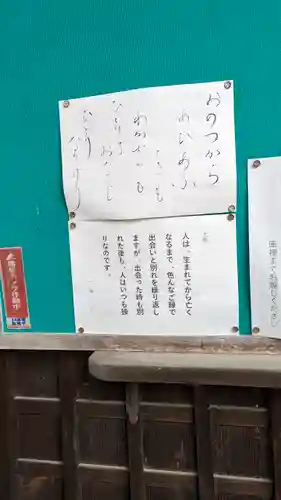 おのつから
あひあふ
ときも
わかれても
ひとりは
ひとり
なりけり
人は、生まれてから亡く
なるまで、色んなご縁で
出会いと別れを繰り返し
ますが、出会った時も別
れた後も、人はいつも独
りなのです。
作動中